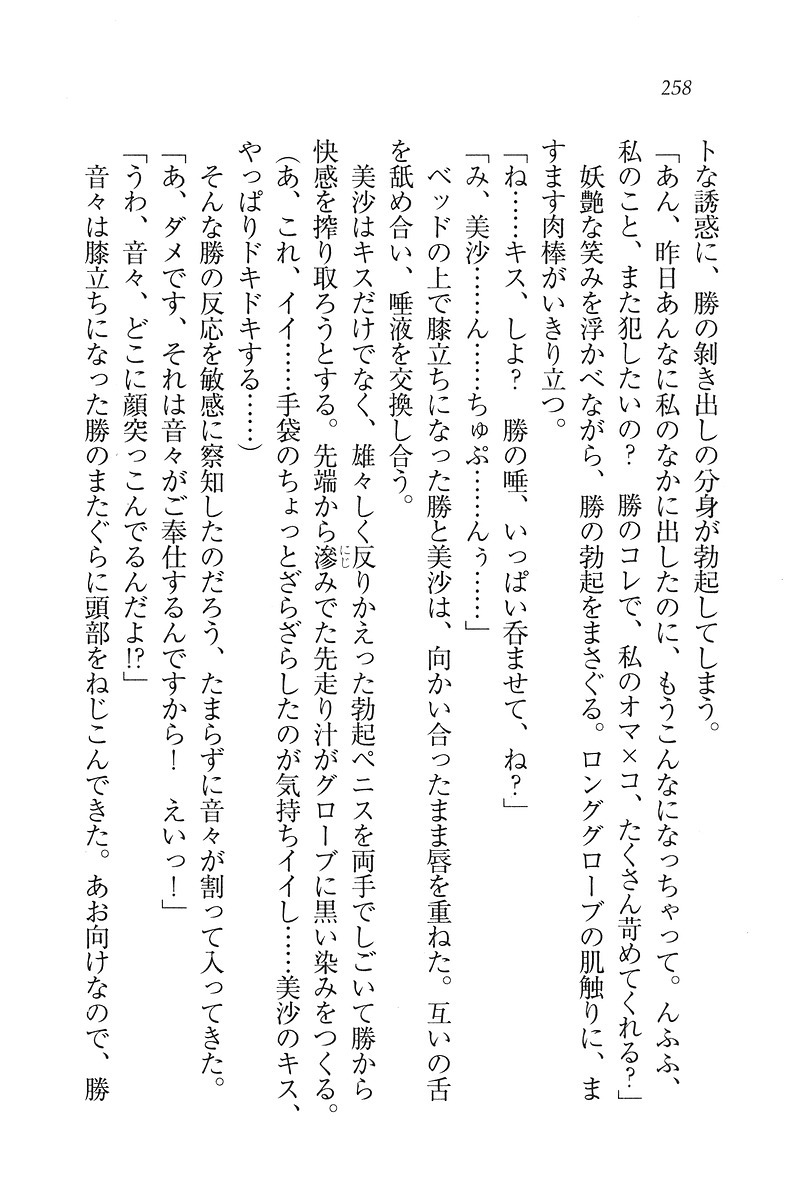 258
トな誘惑に、勝の剝き出しの分身が勃起してしまう。
「あん、昨日あんなに私のなかに出したのに、もうこんなになっちゃって。んふふ、
私のこと、また犯したいの？　勝のコレで、私のオマ×コ、たくさん苛めてくれる？」
妖艶な笑みを浮かべながら、勝の勃起をまさぐる。ロンググローブの肌触りに、ま
すます肉棒がいきり立つ。
「ね……キス、しよ？　勝の唾、いっぱい呑ませて、ね？」
「み、美沙……ん……ちゅぷ……んぅ……」
ベッドの上で膝立ちになった勝と美沙は、向かい合ったまま唇を重ねた。互いの舌
を舐め合い、唾液を交換し合う。
美沙はキスだけでなく、雄々しく反りかえった勃起ペニスを両手でしごいて勝から
快感を搾り取ろうとする。先端から滲みでた先走り汁がグローブに黒い染みをつくる。
にじ
（あ、これ、イイ……手袋のちょっとざらざらしたのが気持ちイイし……美沙のキス、
やっぱりドキドキする……）
そんな勝の反応を敏感に察知したのだろう、たまらずに音々が割って入ってきた。
「あ、ダメです、それは音々がご奉仕するんですから！　えいっ！」
「うわ、音々、どこに顔突っこんでるんだよ!?」
音々は膝立ちになった勝のまたぐらに頭部をねじこんできた。あお向けなので、勝